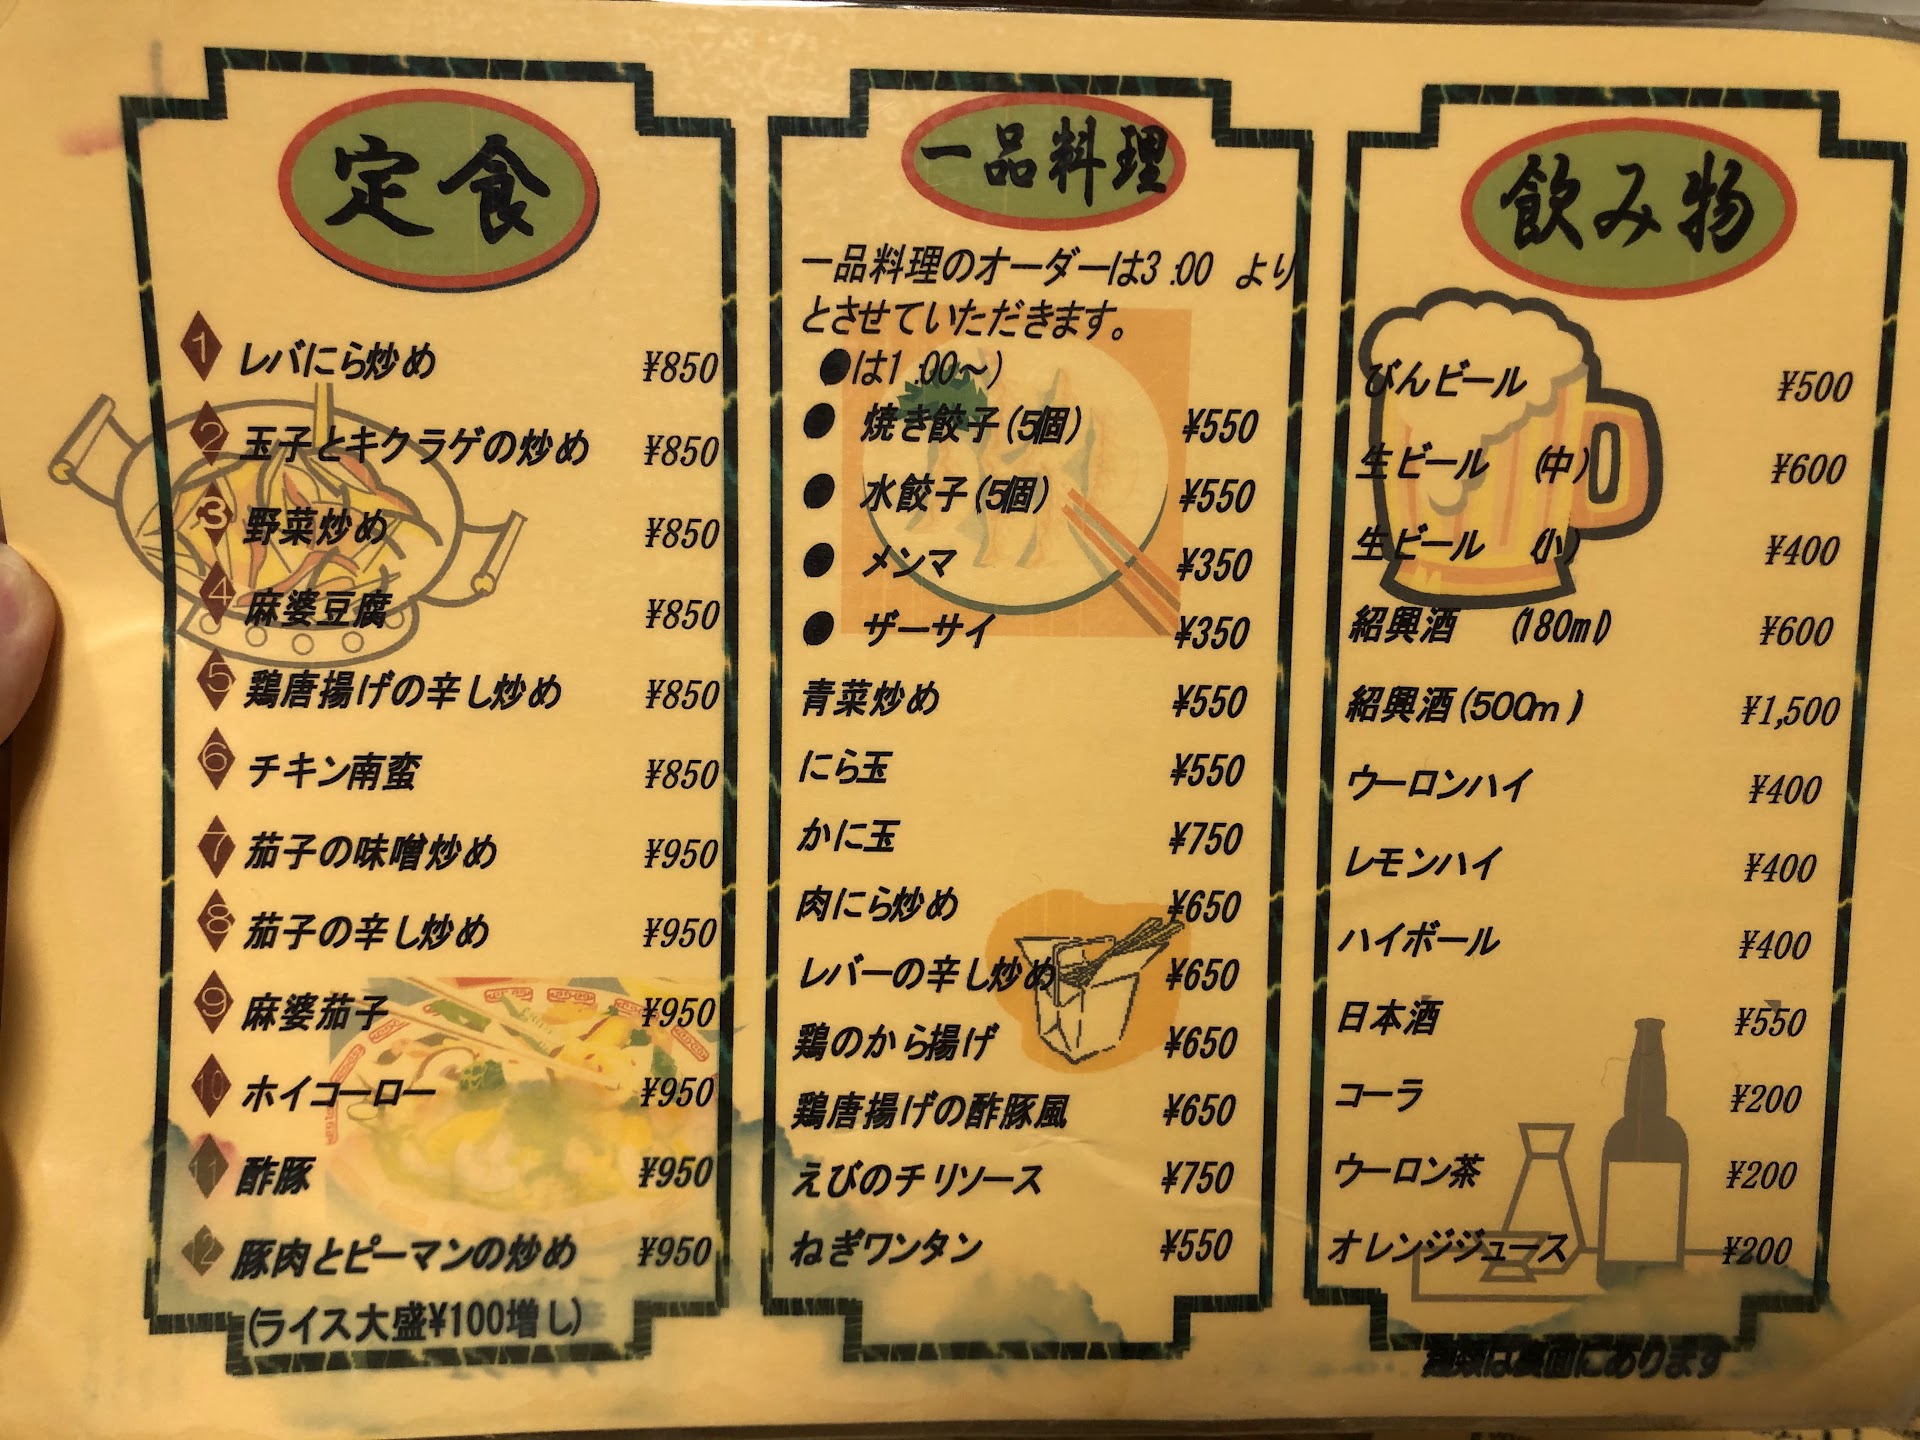 定食
1 レバにら炒め ¥850
2 玉子とキクラゲの炒め ¥850
3 野菜炒め ¥850
4 麻婆豆腐 ¥850
5 鶏唐揚げの辛し炒め ¥850
6 チキン南蛮 ¥850
7 茄子の味噌炒め ¥950
8 茄子の辛し炒め ¥950
9 麻婆茄子 ¥950
10 ホイコーロー ¥950
11 酢豚 ¥950
12 豚肉とピーマンの炒め ¥950
(ライス大盛¥100増し)
一品料理
一品料理のオーダーは3:00 より
とさせていただきます。
●は1:00~)
● 焼き餃子(5個) ¥550
● 水餃子(5個) ¥550
● メンマ ¥350
● ザーサイ ¥350
青菜炒め ¥550
にら玉 ¥550
かに玉 ¥750
肉にら炒め ¥650
レバーの辛し炒め ¥650
鶏のから揚げ ¥650
鶏唐揚げの酢豚風 ¥650
えびのチリソース ¥750
ねぎワンタン ¥550
飲み物
びんビール ¥500
生ビール (中) ¥600
生ビール (小) ¥400
紹興酒 (180ml) ¥600
紹興酒(500m) ¥1,500
ウーロンハイ ¥400
レモンハイ ¥400
ハイボール ¥400
日本酒 ¥550
コーラ ¥200
ウーロン茶 ¥200
オレンジジュース ¥200
麺類は裏面にあります